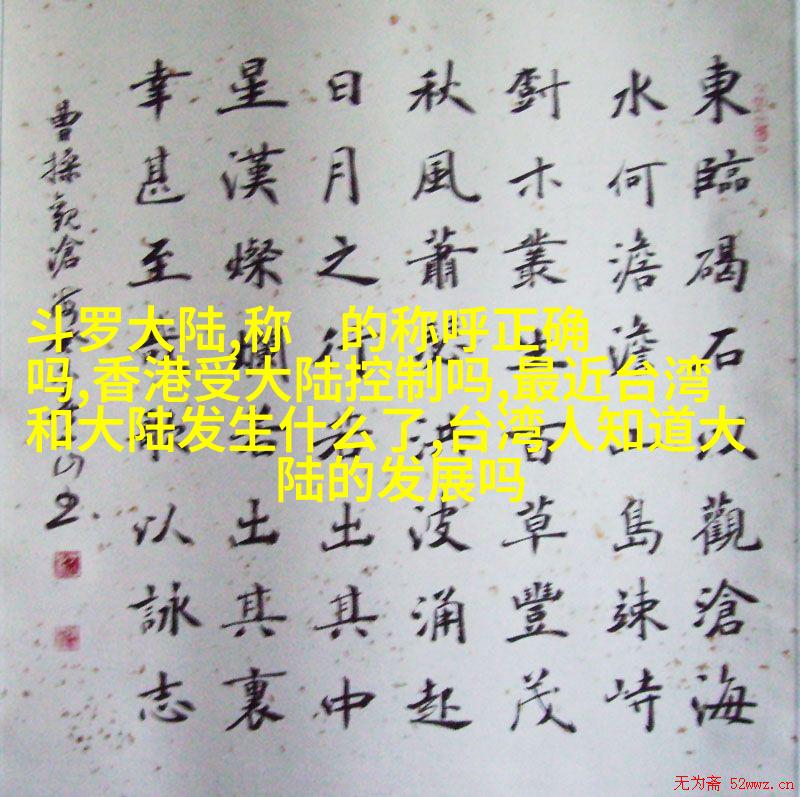 東臨碣石以觀滄海
水何澹澹山島竦峙
木叢生百草豐茂
秋風蕭瑟洪波涌起
日月之行若出其中
星漢燦爛若出其裏
幸甚至哉歌以詠志
曹操觀滄海
斗罗大陆,称 的称呼正确
吗,香港受大陆控制吗,最近台湾
和大陆发生什么了,台湾人知道大
陆的发展吗
无为斋 52wwz.cn